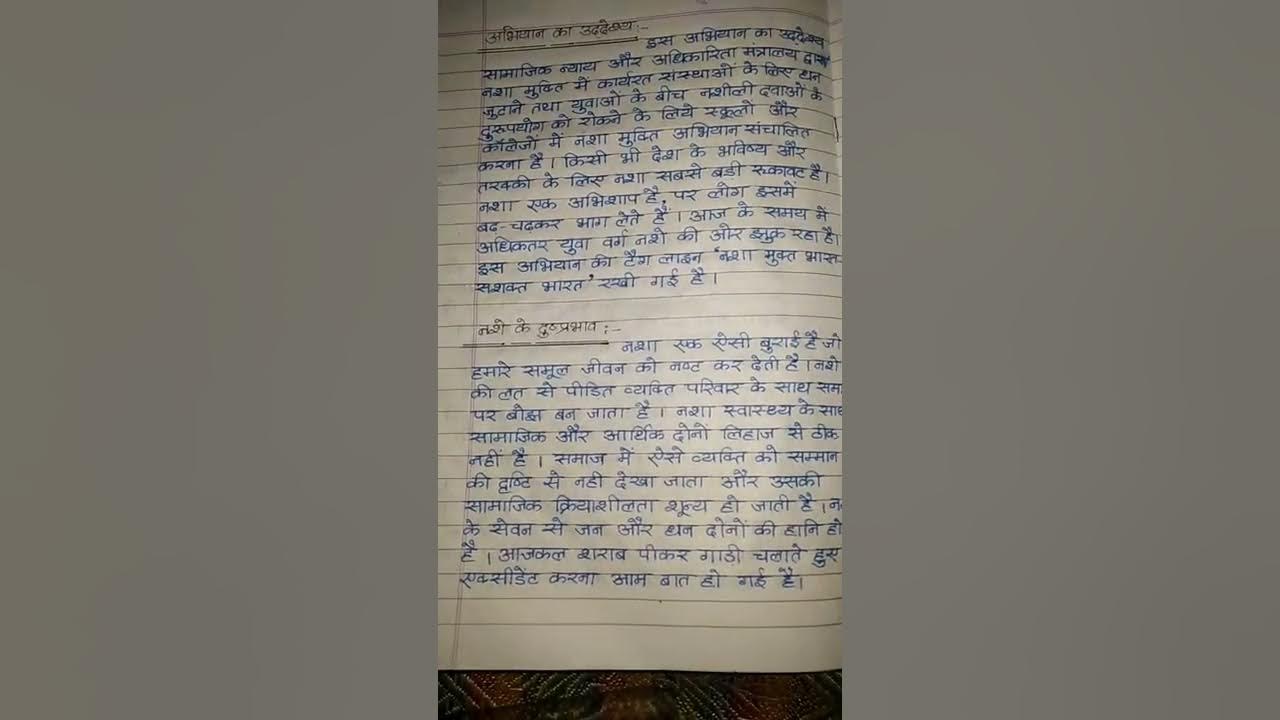 अभियान का उददेश्य:-
इस अभियान का उददेश्य
सामाजिक न्याय और अधिकारिता मंत्रालय द्वारा
नशा मुक्ति में कार्यरत संस्थाओं के लिए धन
जुटाने तथा युवाओं के बीच नशीली दवाओं के
दुरुपयोग को रोकने के लिये स्कूलों और
कॉलेजों में नशा मुक्ति अभियान संचालित
करना है। किसी भी देश के भविष्य और
तरक्की के लिए नशा सबसे बड़ी रुकावट है।
नशा एक अभिशाप है, पर लोग इसमें
बढ़-चढ़कर भाग लेते हैं। आज के समय में
अधिकतर युवा वर्ग नशे की ओर झुक रहा है।
इस अभियान की टैग लाइन 'नशा मुक्त भारत-
सशक्त भारत' रखी गई है।
नशे के दुष्प्रभाव:-
नशा एक ऐसी बुराई है जो
हमारे समूल जीवन को नष्ट कर देती है। नशे
की लत से पीडित व्यक्ति परिवार के साथ समा
पर बोझ बन जाता है। नशा स्वास्थ्य के साथ
सामाजिक और आर्थिक दोनों लिहाज से ठीक
नहीं है। समाज में ऐसे व्यक्ति को सम्मान
की दृष्टि से नही देखा जाता और उसकी
सामाजिक क्रियाशीलता शून्य हो जाती है। न
के सेवन से जन और धन दोनों की हानि हो
है। आजकल शराब पीकर गाडी चलाते हुए
एक्सीडेंट करना आम बात हो गई है।